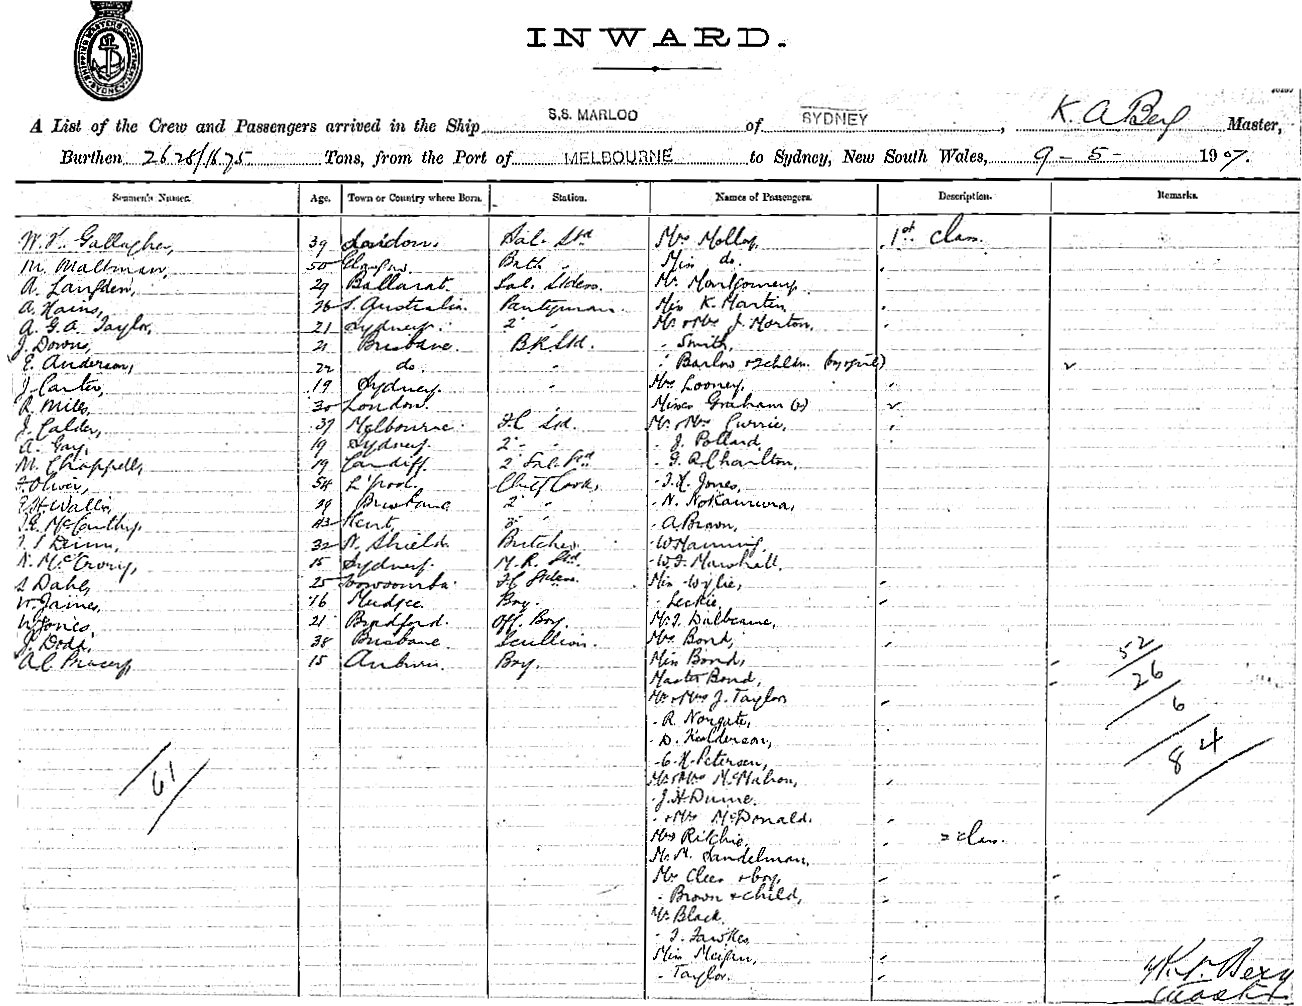 SHIPPING MASTERS DEPARTMENT SYDNEY
INWARD.
A List of the Crew and Passengers arrived in the Ship S.S. MARLOO of SYDNEY, K. A Berg Master,
Burthen 2628/1675 Tons, from the Port of MELBOURNE to Sydney, New South Wales, 9 - 5 - 1907.
Seamen's Names. Age. Town or Country where Born. Station. Names of Passengers. Description. Remarks.
Gallagher, 39 London, Sal. Std Mrs Molloy, 1st class.
M. Maltman, 50 Glasgow. Bath Miss do.
A. Langden, 29 Ballarat. Sal. Stdess. Mr Montgomery,
A. Hains, 26 S. Australia. Pantryman. Miss K. Martin,
A. G. A. Taylor, 21 Sydney. 2 " Mr & Mrs J. Morton,
J. Downs, 21 Brisbane. B.R. Std. " Smith,
E. Anderson, 22 do. " " Barlow & 2 chldn.
J. Carter, 19 Sydney. " Mrs Looney,
R. Miles, 30 London. " Misses Graham (2)
J. Calder, 37 Melbourne. F.C Std. Mr & Mrs Currie,
A. Gay, 19 Sydney. 2 " " J. Pollard
M. Chappell, 19 Cardiff 2 Sal. Std " G. R. Charlton,
Oliver, 54 L'pool. Chief Cook, Jones,
Wallis, 29 Brisbane 2 " " N.
McCarthy, 43 Kent, 3 " " A Brown,
Dunn, 32 N. Shields. Butcher " W Manning,
McCrory, 15 Sydney. M.R. Std " W. J. Marshall,
S Dahl, 25 Toowoomba. F.C Stdess. Miss Wylie,
W. James, 16 Mudgee. Boy. " Leckie,
W Jones, 21 Bradford. Off. Boy. Mr J. Dalbeanie,
J. Dodd, 38 Brisbane Scullion. Mrs Bond,
A. C. 15 Auburn. Boy. Miss Bond,
Master Bond,
Mr & Mrs J. Taylor
" R. Norgate,
" D.
Petersen,
Mr & Mrs McMahon,
" J. H. Dunne.
" & Mrs McDonald.
Mrs Ritchie, 2 class.
Mr M. Sandelman,
Mrs Clees & boy,
" Brown & child,
Mr Black.
" J. Fawkes
Miss Meighan,
" Taylor.
61
52
26
6
84
Berg
Master